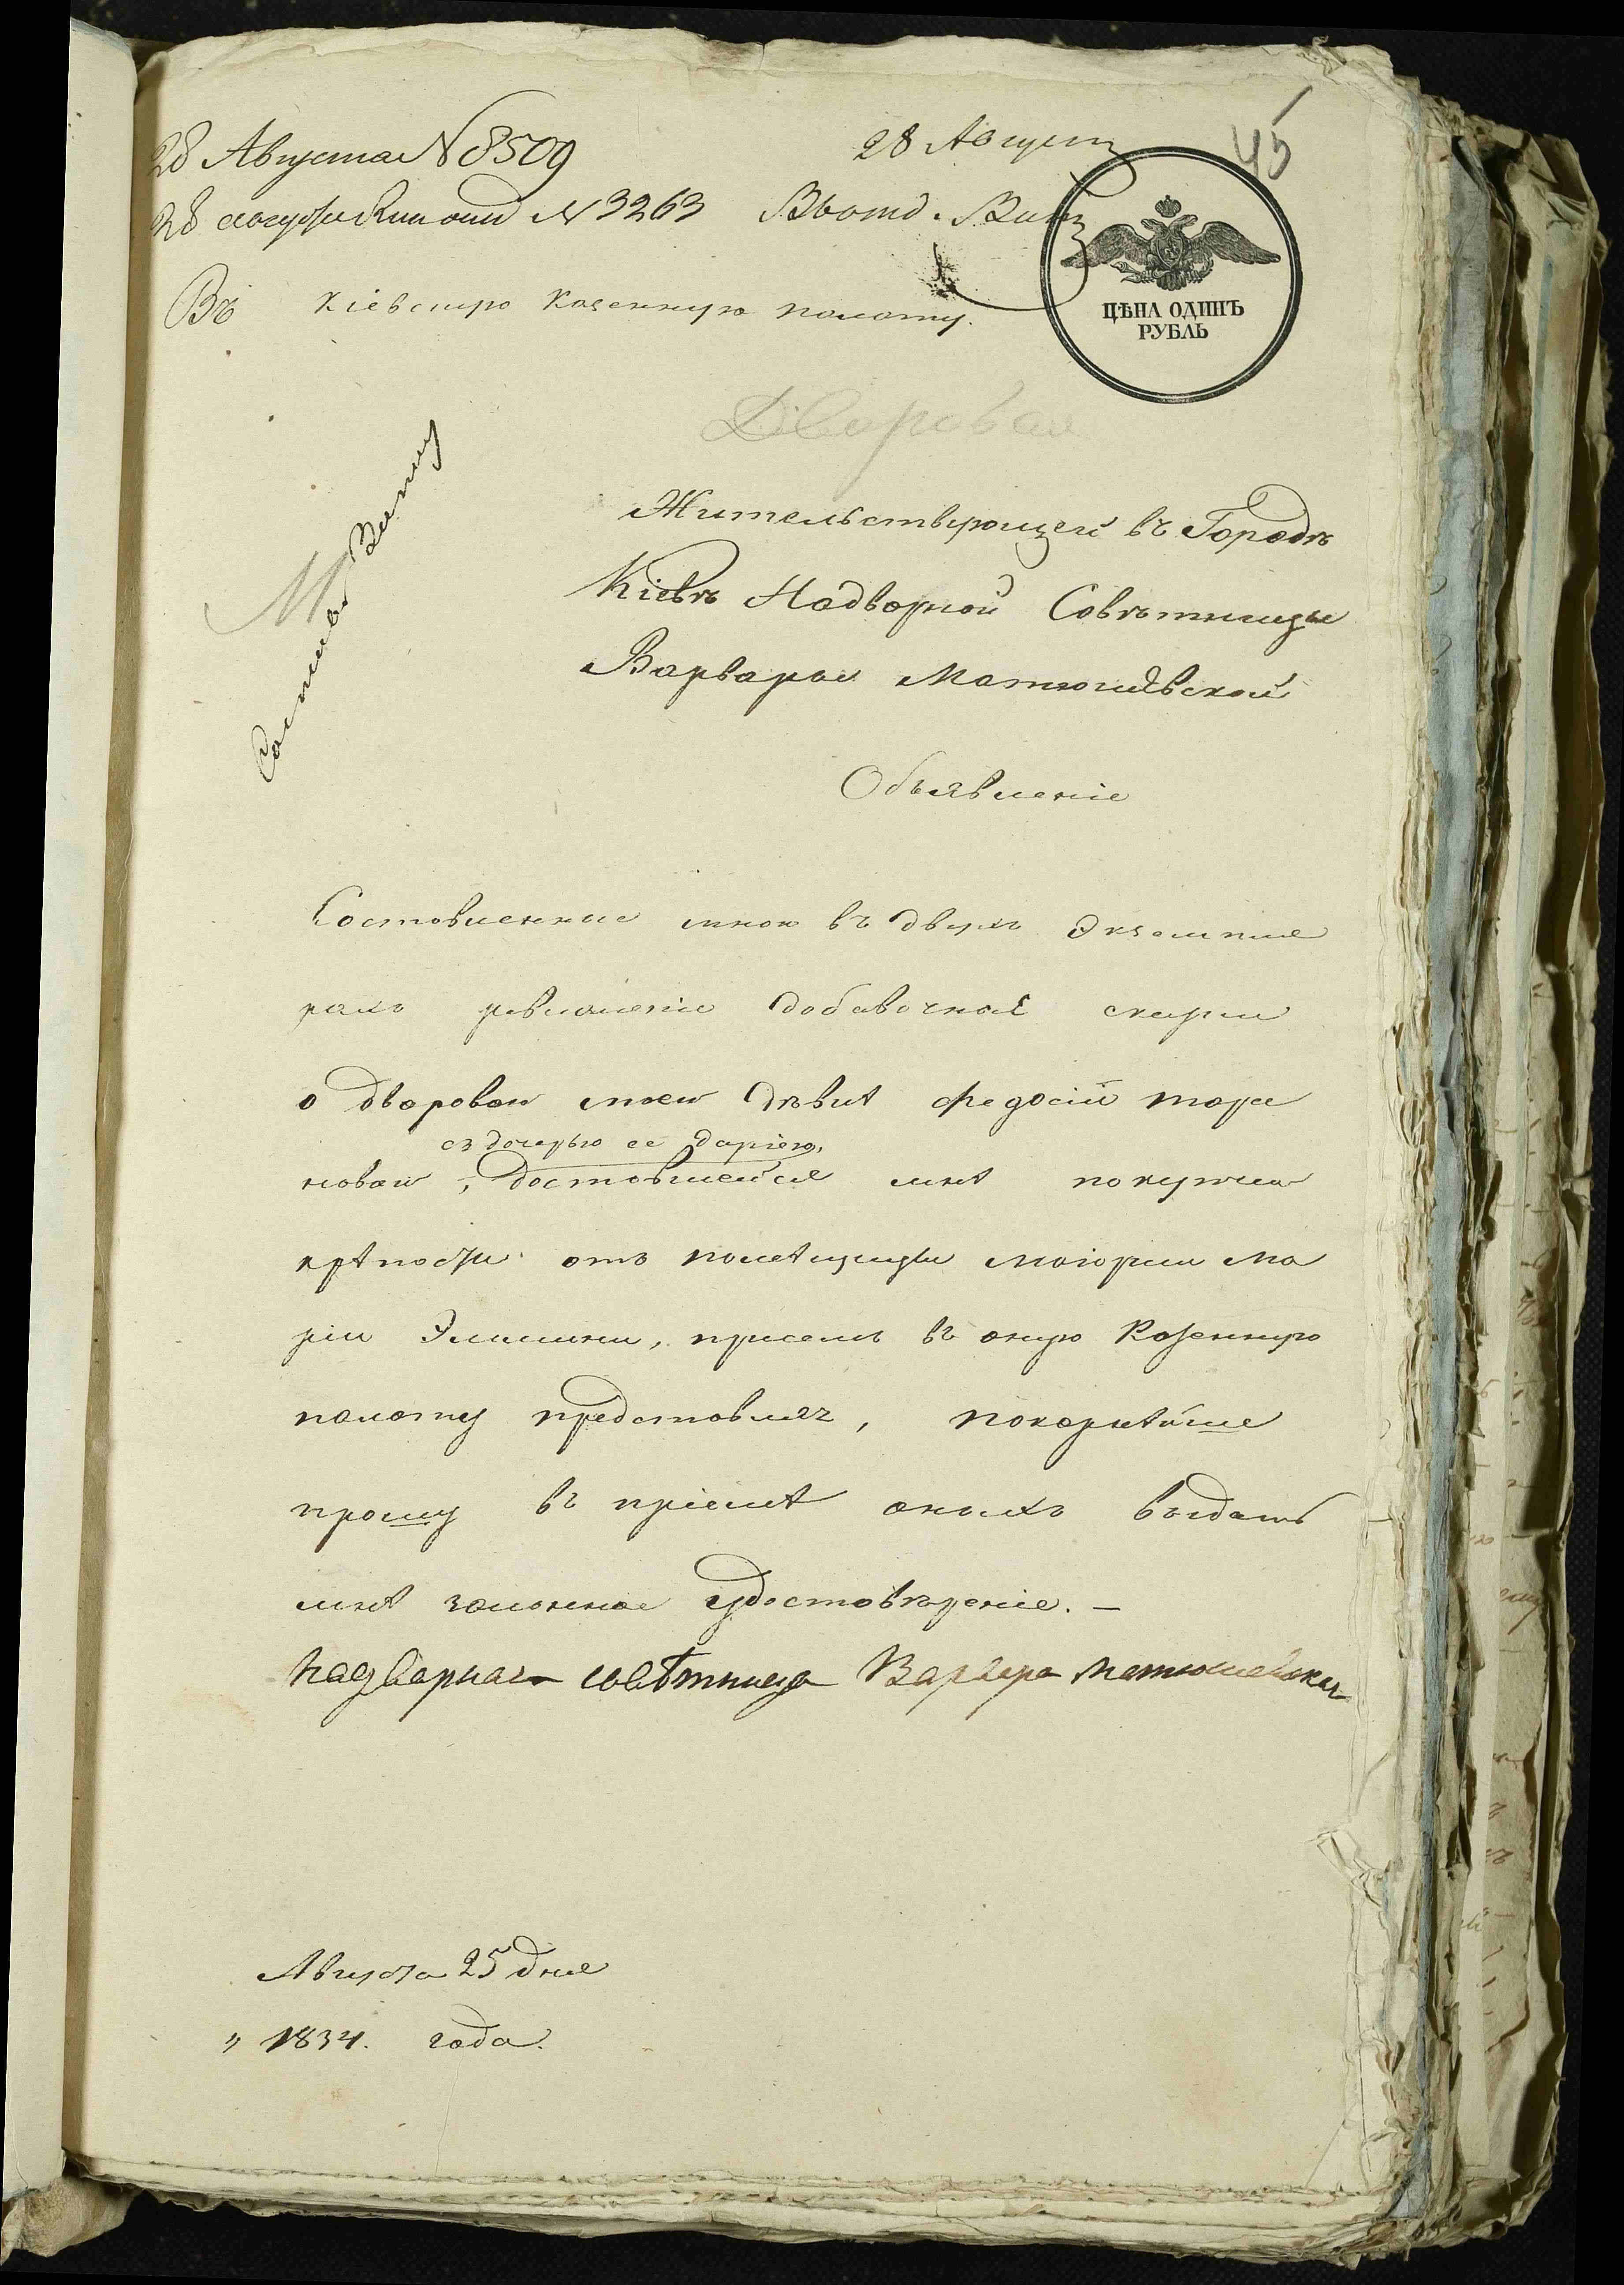 28 Августа № 8509
28 Август
45
№ 3263
Въ Кіевскую Казенную палату.
ЦѢНА ОДИНЪ
РУБЛЬ
Дворовая
Жительствующей въ Городѣ
Кіевѣ Надворной Совѣтницы
Варвары Матюшевской
Объявленіе
Составленные мною въ двухъ Экземпля
рахъ добавочныя скаски
о дворовой моей дѣвкѣ Федосіи Тара
съ дочерью ее Даріею,
новой, доставшейся мнѣ по купчей
крѣпости отъ помѣщицы маіорши Ма
ріи, присемъ въ оную Казенную
палату представляя, покорнѣйше
прошу въ пріемѣ оныхъ выдать
мнѣ законное удостовѣреніе. —
Надворная совѣтница Варвара Матюшевская
Августа 25 дня
" 1834. года.